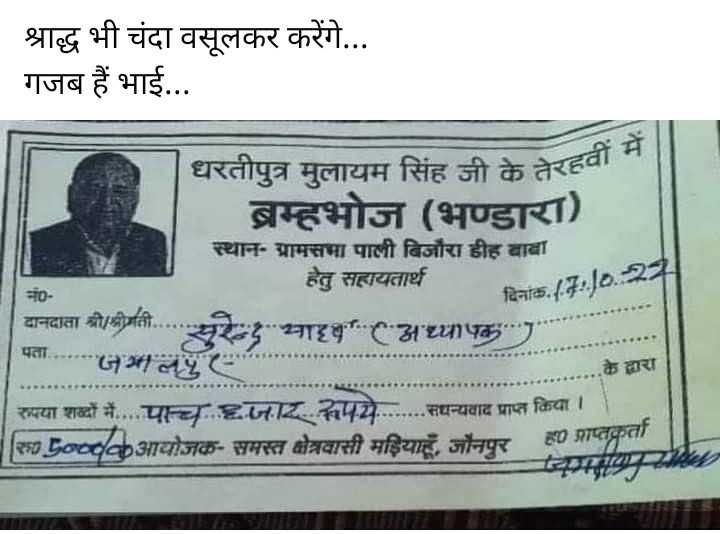 श्राद्ध भी चंदा वसूलकर करेंगे...
गजब हैं भाई...
धरतीपुत्र मुलायम सिंह जी के तेरहवीं में
ब्रम्हभोज (भण्डारा)
स्थान- ग्रामसभा पाली बिजौरा डीह बाबा
हेतु सहायतार्थ
नं0-
दिनांक. 17.10.22
दानदाता श्री/श्रीमती..... सुरेन्द्र यादव (अध्यापक)
पता..... जमालपुर
..... के द्वारा
रुपया शब्दों में.... पाच हजार रूपये ..... सधन्यवाद प्राप्त किया ।
रु0 5000/- आयोजक- समस्त क्षेत्रवासी मड़ियाहूँ, जौनपुर ह0 प्राप्तकर्ता